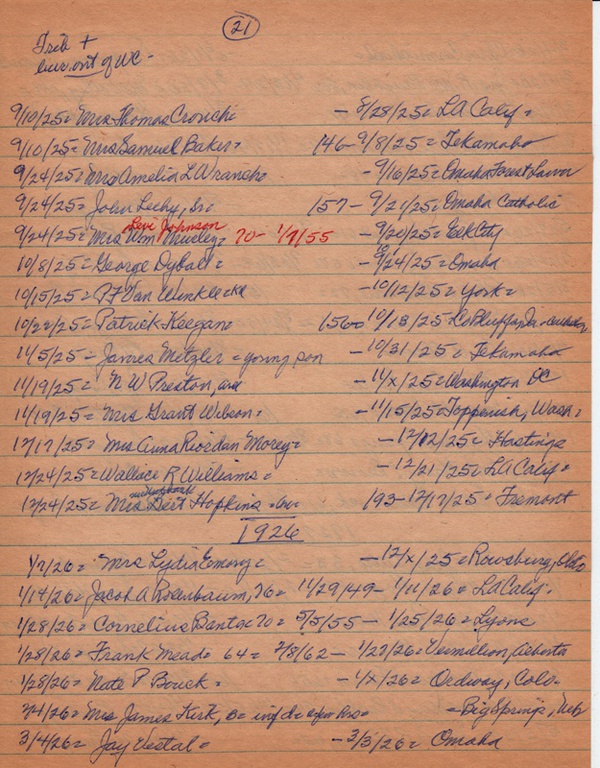 21
Trib +
out of WC -
9/10/25 = Mrs Thomas Cronchi - 8/28/25 = LA Calif =
9/10/25 = Mrs Samuel Baker = 146 - 9/8/25 = Tekamah
9/24/25 = Mrs Amelia L - 9/16/25 = Omaha Forest Lawn
9/24/25 = John Leehy, Sr = 157 - 9/21/25 = Omaha Catholic
Levi Johnson
9/24/25 = Mrs Wm = 70 - 1/9/55 - 9/20/25 = Elk City
10/8/25 = George Dyball = - 9/24/25 = Omaha
10/15/25 = PF Van Winkle - 10/12/25 = York =
10/22/25 = Patrick Keegan = 156 - 10/18/25 =
11/5/25 - James Metzler = young son - 10/31/25 = Tekamah
11/19/25 = N W Preston, - 11/x/25 = Washington DC
11/19/25 = Mrs Grant Wilson = - 11/15/25 Toppenish, Wash =
12/17/25 = Mrs Anna Riordan Morey = - 12/12/25 = Hastings
12/24/25 = Wallace R Williams = - 12/21/25 = LA Calif =
12/24/25 = Mrs Bert Hopkins 193 - 12/17/25 = Fremont
1926
1/7/26 = Mrs Lydia Emory = - 12/x/25 = Rowsburg, Ohio
1/14/26 = Jacob A Rosenbaum, 76 = 11/29/49 - 1/11/26 = LA Calif.
1/28/26 = Cornelius Banta = 70 = 5/5/55 - 1/25/26 = Lyons
1/28/26 = Frank Mead = 64 = 2/8/62 - 1/22/26 = Vermillion, Alberta
1/28/26 = Nate P Bouck = - 1/x/26 = Ordway, Colo.
2/4/26 = Mrs James Kirk, = Big Springs, Neb
3/4/26 = Jay Vestal = - 3/3/26 = Omaha